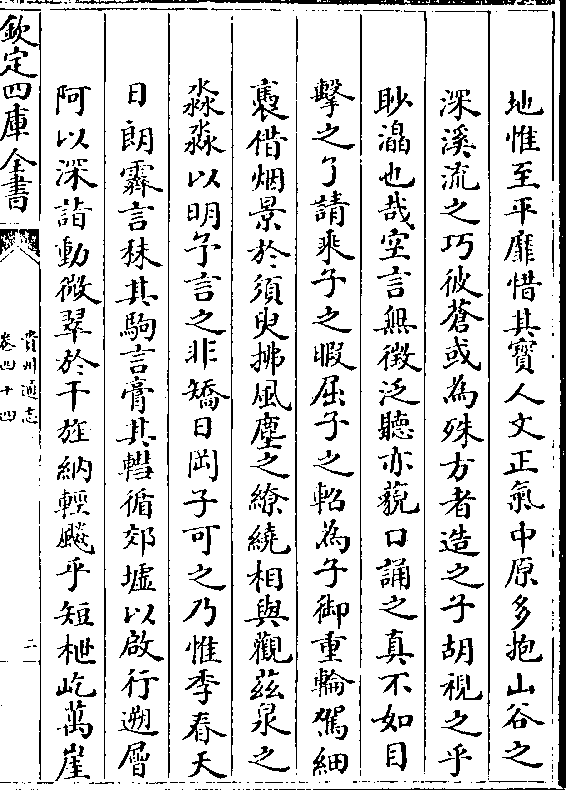 地惟至平靡惜其寳人文正氣中原多抱山谷之
深溪流之巧彼蒼或為殊方者造之子胡視之乎
眇溘也哉空言無徵泛聽亦藐口誦之真不如目
擊之了請乘子之暇屈子之軺為子御重輪駕細
褭借烟景於須臾拂風塵之繚繞相與觀兹泉之
淼淼以明予言之非矯日岡子可之乃惟季春天
日朗霽言秣其駒言膏其轊循郊墟以啟行遡層
阿以深詣動微翠於干旌納輕飔乎短枻屹萬崖
欽定四庫全書
貴州通志
卷四十四
二